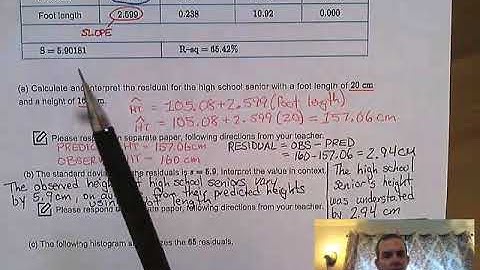 Foot length 2.599 0.238 10.92 0.000
SLOPE
S = 5.90181 R-sq = 65.42%
(a) Calculate and interpret the residual for the high school senior with a foot length of 20 cm
and a height of 160 cm.
HT = 105.08 + 2.599 (foot length)
HT = 105.08 + 2.599 (20) = 157.06 cm
Please respond on separate paper, following directions from your teacher.
PREDICTED HT = 157.06 cm RESIDUAL = OBS - PRED
OBSERVED HT = 160 cm = 160 - 157.06 = 2.94 cm
(b) The standard deviation of the residuals is s = 5.9. Interpret the value in context.
The high school
senior's height
was understated
by 2.94 cm
The observed heights of high school seniors vary
by 5.9 cm, on average, from their predicted heights
using foot length
Please respond on separate paper, following directions from your teacher.
(c) The following histogram summarizes the 65 residuals.